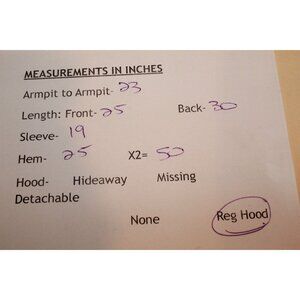 MEASUREMENTS IN INCHES
Armpit to Armpit- 23
Length: Front- 25 Back- 30
Sleeve- 19
Hem- 25 X2= 50
Hood- Hideaway Missing
Detachable
None Reg Hood